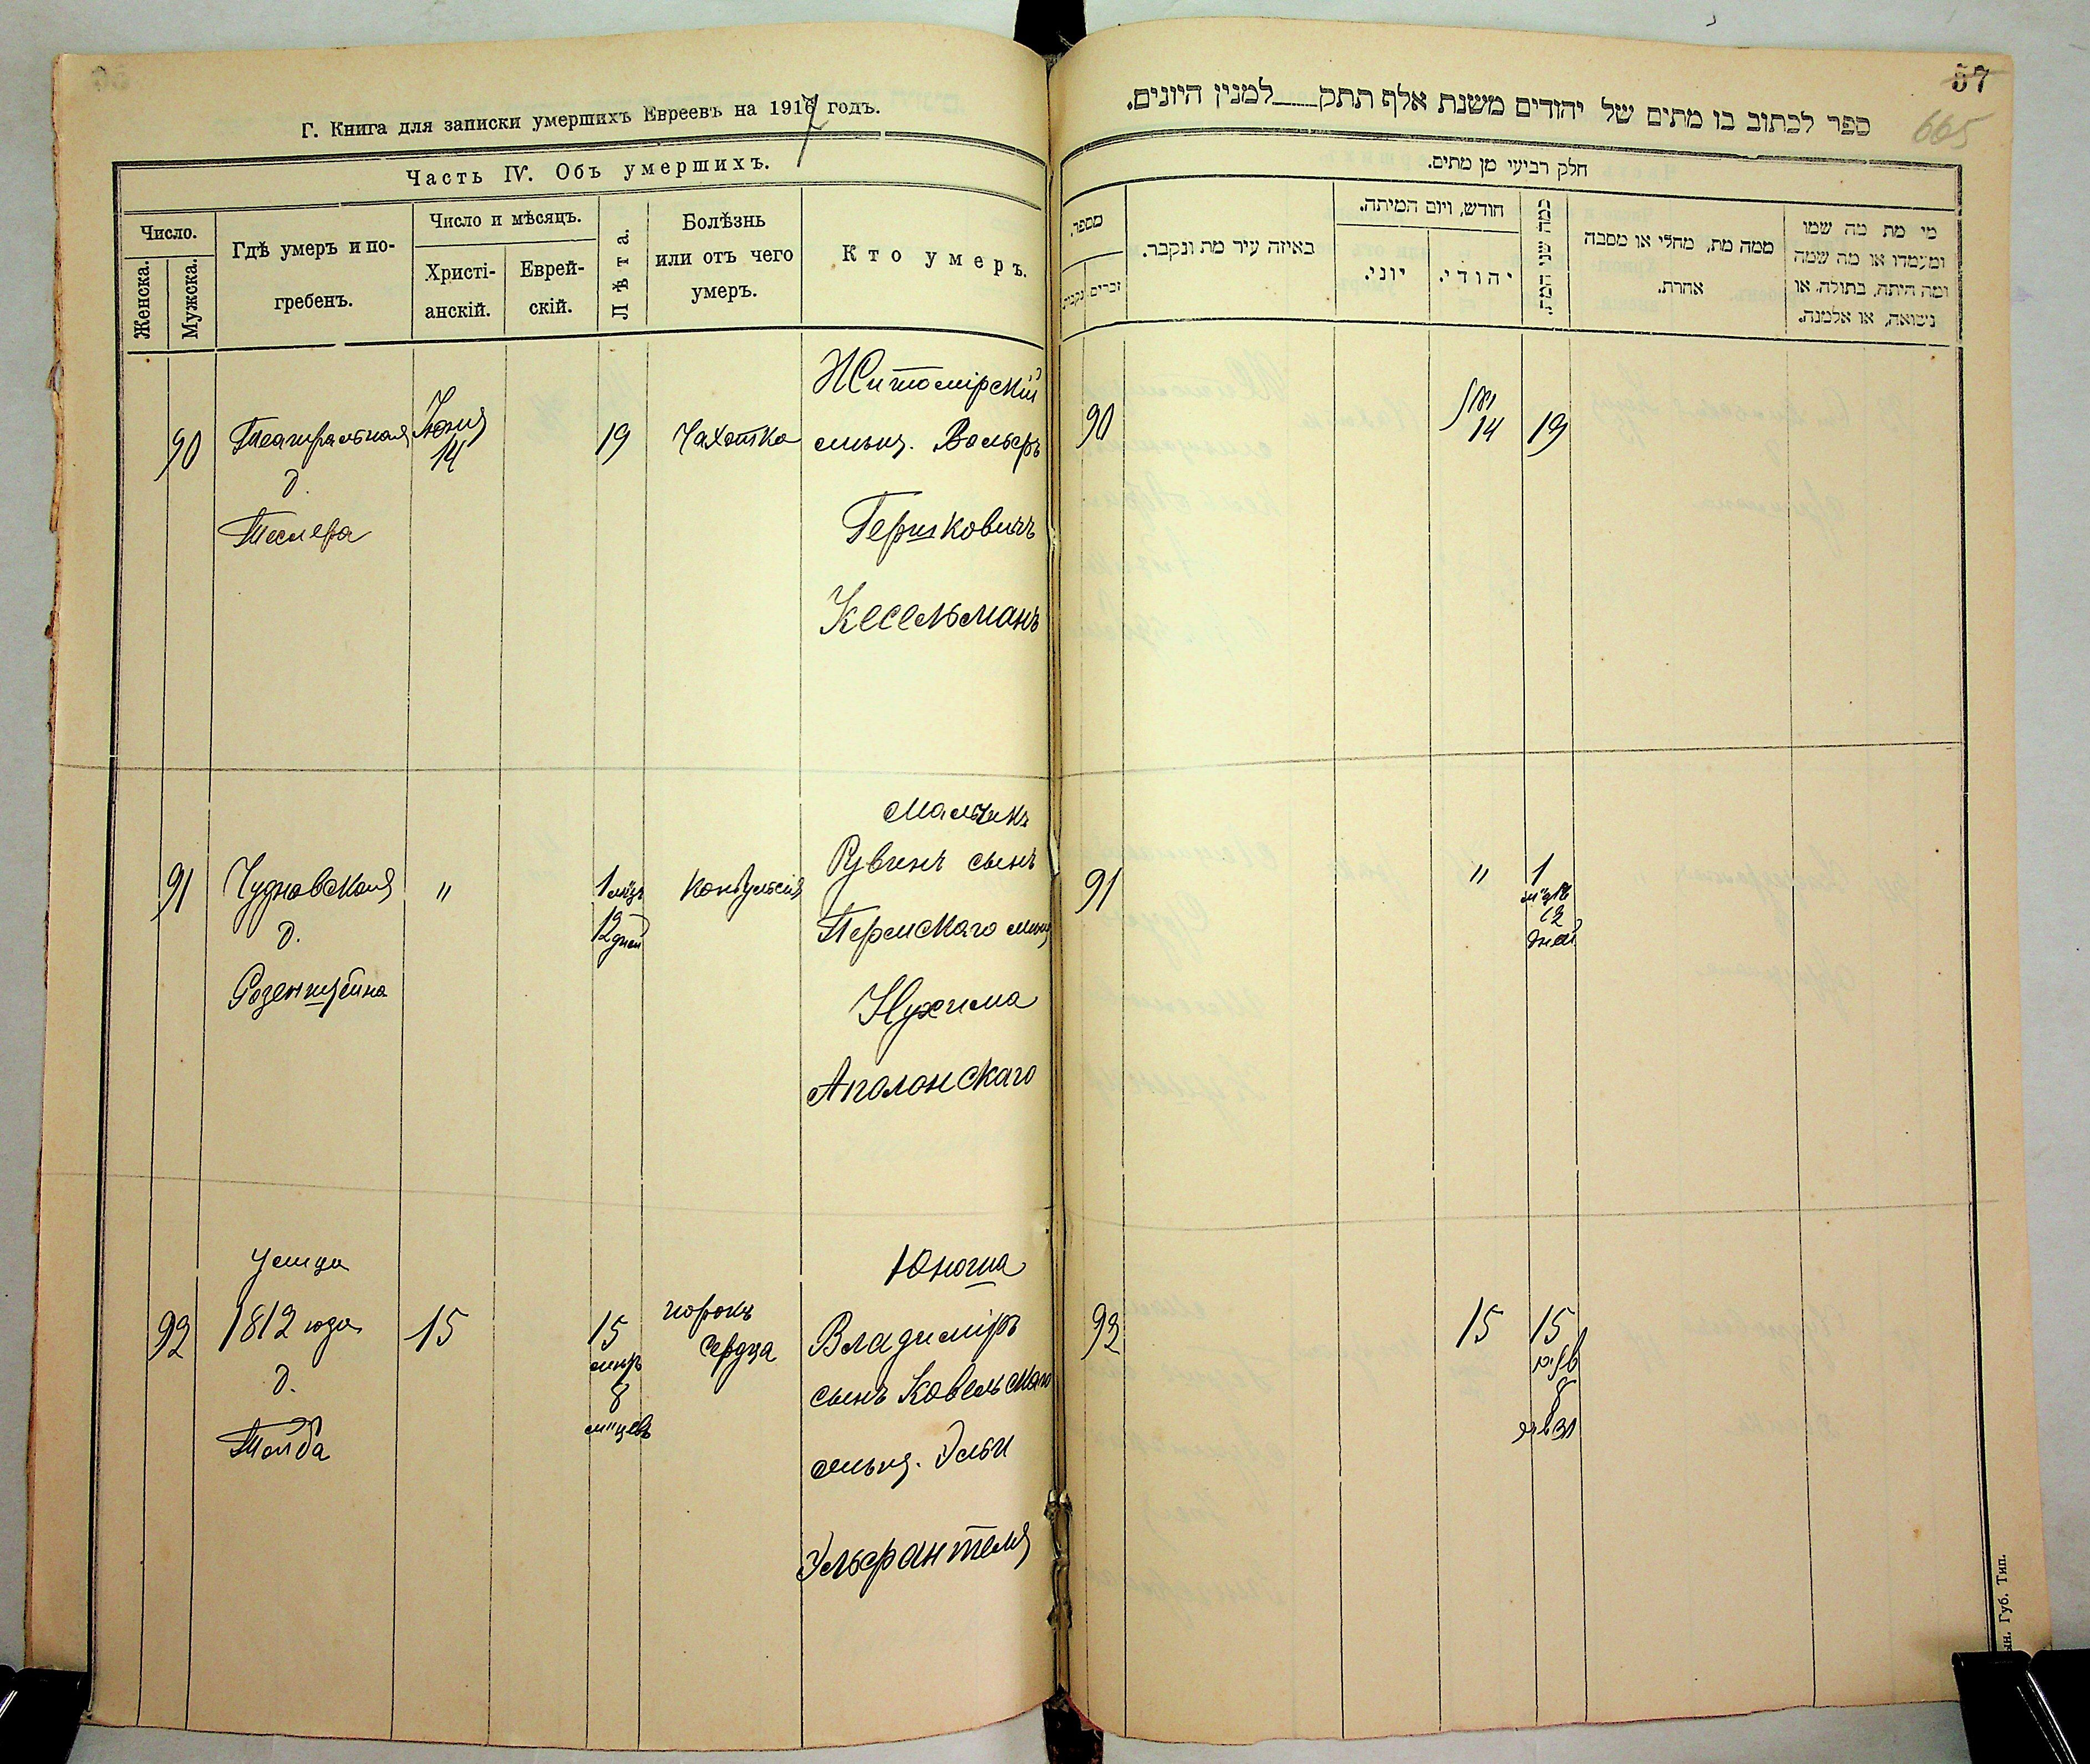 Г. Книга для записки умершихъ Евреевъ на 1917 годъ.
Часть IV. Объ умершихъ.
Число.
Женска.
Мужска.
Гдѣ умеръ и по-
гребенъ.
Число и мѣсяцъ.
Христі-
анскій.
Еврей-
скій.
Лѣта.
Болѣзнь
или отъ чего
умеръ.
Кто умеръ.
90
Театральная
д.
Теслера
Іюня
14
19
Чахотка
Житомірскій
мѣщ. Вольфъ
Гершковичъ
Кесельманъ
91
Чудновская
д.
Розенштейна
"
1 мѣц
12 дней
Конвульсія
Мальчикъ
Рувинъ сынъ
мѣщ
Нухима
Аполонскаго
92
Улица
1812 года
д.
15
15
лѣтъ
8
м-цевъ
порокъ
сердца
Юноша
Владиміръ
сынъ Ковельскаго
мѣщ. Эльи
Ульфантеля
57
665
ספר לכתוב בו מתים של יהודים משנת אלף תתק למנין היונים.
חלק רביעי מן מתים.
מספר.
זכרים
נקבות
באיזה עיר מת ונקבר.
חודש, ויום המיתה.
יוני.
יהודי.
כמה שני המת.
ממה מת, מחלי או מסבה
אחרת.
מי מת מה שמו
ומעמדו או מה שמה
ומה היתה, בתולה, או
נשואה, או אלמנה.
90
14
19
91
"
1
12
дней
92
15
15
8
Губ. Тип.